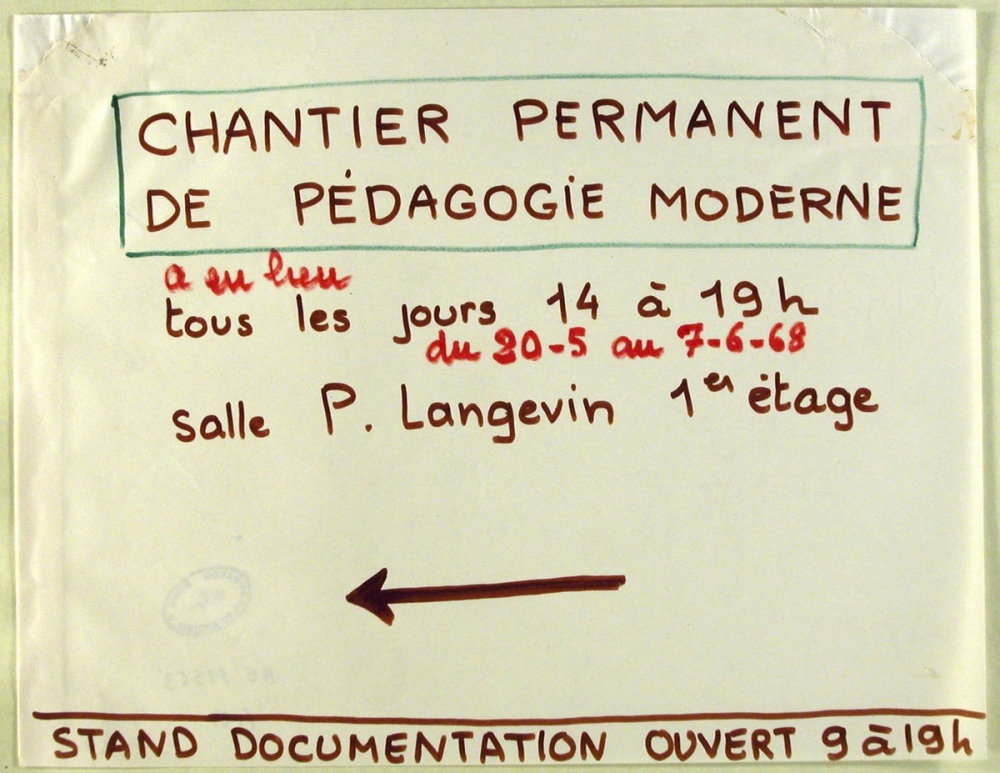 CHANTIER PERMANENT
DE PÉDAGOGIE MODERNE
a eu lieu
tous les jours 14 à 19 h
du 20-5 au 7-6-68
salle P. Langevin 1er étage
STAND DOCUMENTATION OUVERT 9 à 19h